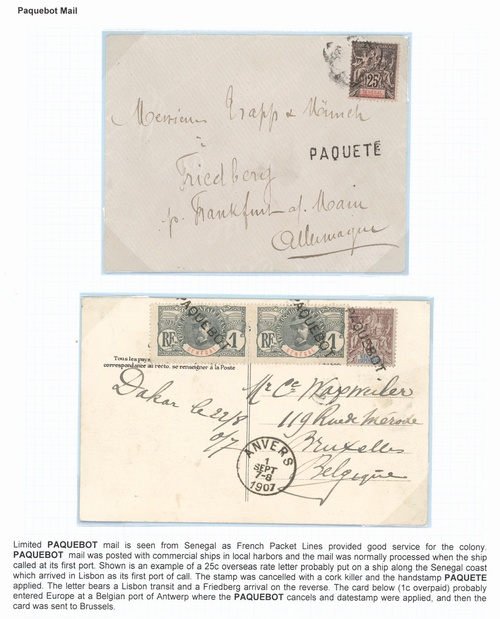 Paquebot Mail
25
SENEGAL
Messieurs Trapp & Münch
à
PAQUETE
Friedberg
pr. Frankfurt a/ Main
Allemagne
PAQUEBOT PAQUEBOT PAQUEBOT
RF 1 RF 1
SENEGAL SENEGAL
Tous les pays
correspondance au recto, se renseigner à la Poste
Dakar le 22/8
07
Mr Ce Waxweiler
119 Rue de Mérode
Bruxelles
Belgique
ANVERS
1
SEPT
7-8
1907
Limited PAQUEBOT mail is seen from Senegal as French Packet Lines provided good service for the colony.
PAQUEBOT mail was posted with commercial ships in local harbors and the mail was normally processed when the ship
called at its first port. Shown is an example of a 25c overseas rate letter probably put on a ship along the Senegal coast
which arrived in Lisbon as its first port of call. The stamp was cancelled with a cork killer and the handstamp PAQUETE
applied. The letter bears a Lisbon transit and a Friedberg arrival on the reverse. The card below (1c overpaid) probably
entered Europe at a Belgian port of Antwerp where the PAQUEBOT cancels and datestamp were applied, and then the
card was sent to Brussels.